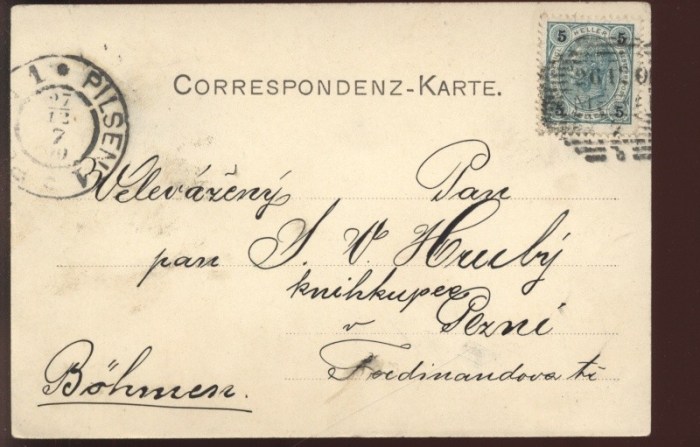 CORRESPONDENZ-KARTE.
5 HELLER 5
5 5
1 * PILSEN 1
27
12
7
Velevážený Pan
pan J. V. Hrubý
knihkupec
v Plzni
Ferdinandova tř
Böhmen.